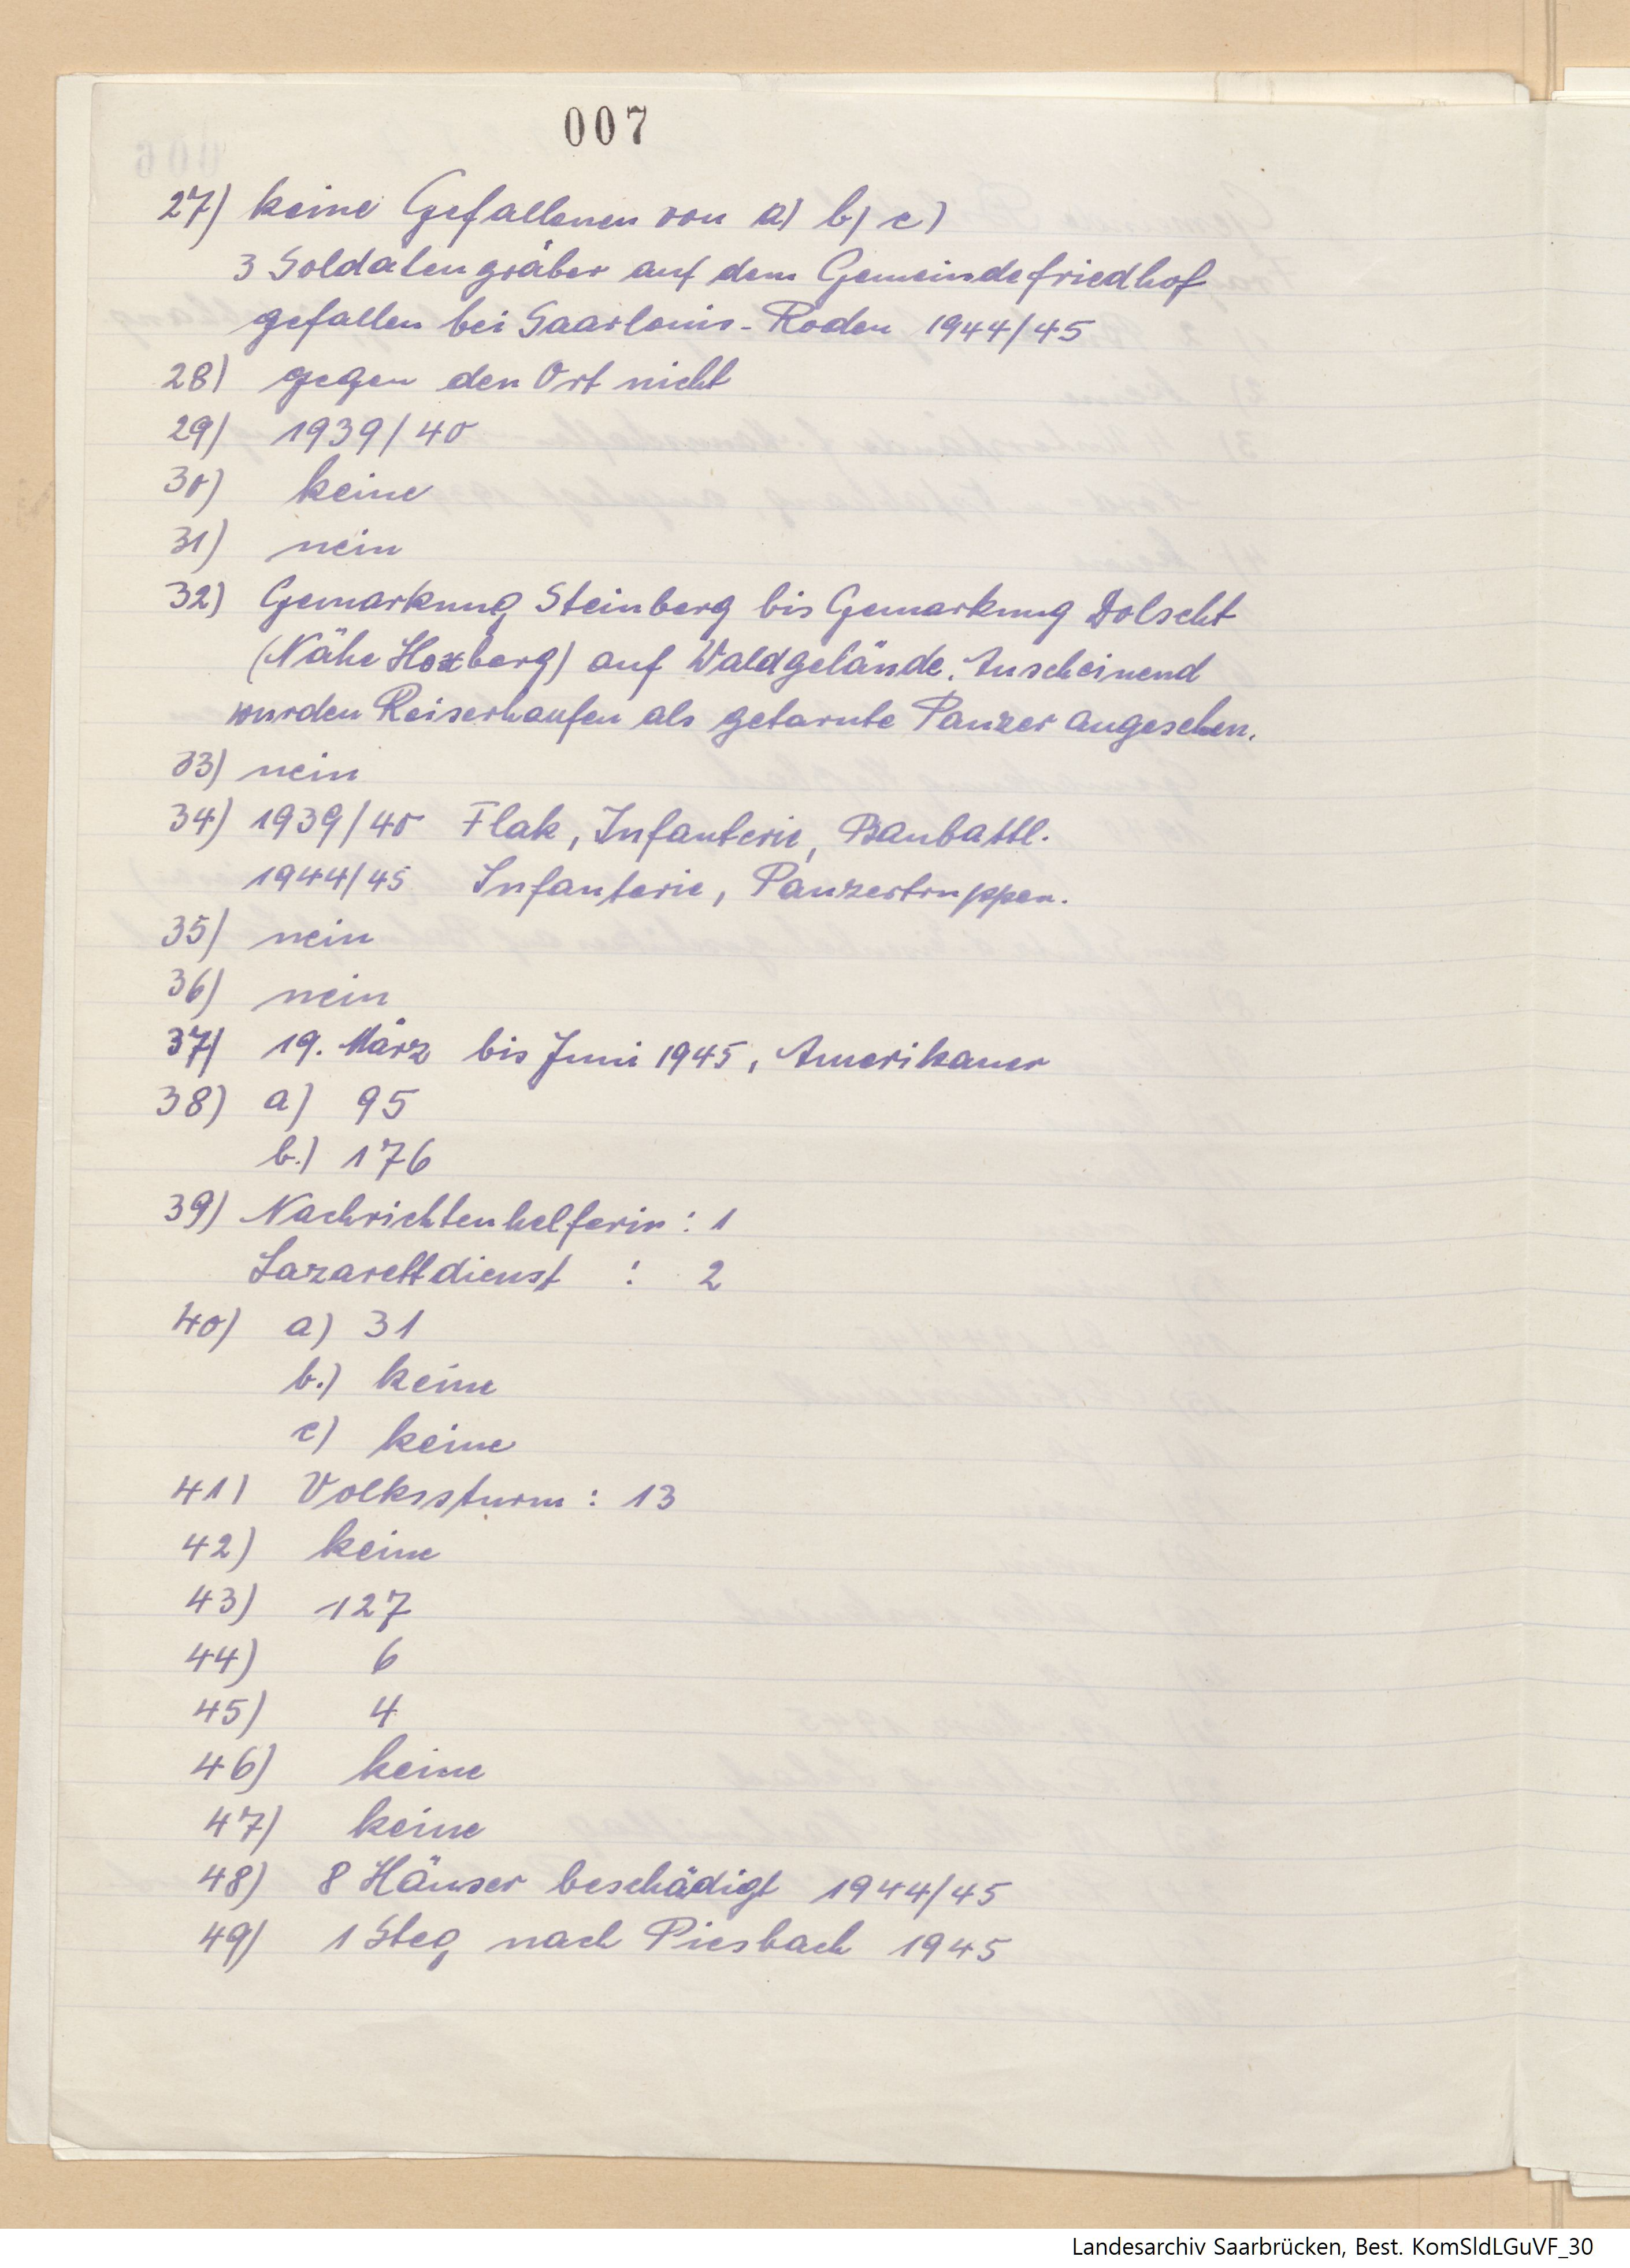 007
27) keine Gefallenen von a) b) c)
3 Soldatengräber auf dem Gemeindefriedhof
gefallen bei Saarlouis-Roden 1944/45
28) gegen den Ort nicht
29) 1939/40
30) keine
31) nein
32) Gemarkung Steinberg bis Gemarkung Dolscht
(Nähe Hoxberg) auf Waldgelände. Anscheinend
wurden Reiserhaufen als getarnte Panzer angesehen.
33) nein
34) 1939/40 Flak, Infanterie, Baubattl.
1944/45 Infanterie, Panzertruppen.
35) nein
36) nein
37) 19. März bis Juni 1945, Amerikaner
38) a) 95
b.) 176
39) Nachrichtenhelferin: 1
Lazarettdienst : 2
40) a) 31
b.) keine
c) keine
41) Volkssturm: 13
42) keine
43) 127
44) 6
45) 4
46) keine
47) keine
48) 8 Häuser beschädigt 1944/45
49) 1 Steg nach Piesbach 1945
Landesarchiv Saarbrücken, Best. KomSldLGuVF_30